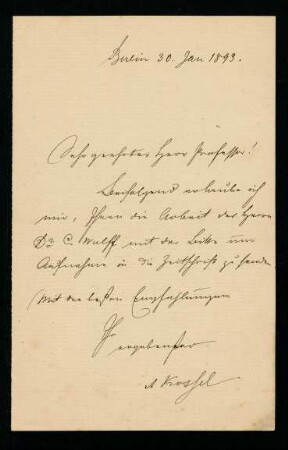 Berlin 30. Jan 1893.
Sehr geehrter Herr Professor!
Beifolgend erlaube ich
mir, Ihnen die Arbeit des Herrn
Dr C. Wulff mit der Bitte um
Aufnahme in die Zeitschrift zu senden
Mit den besten Empfehlungen
Ihr
ergebenster
A Kossel